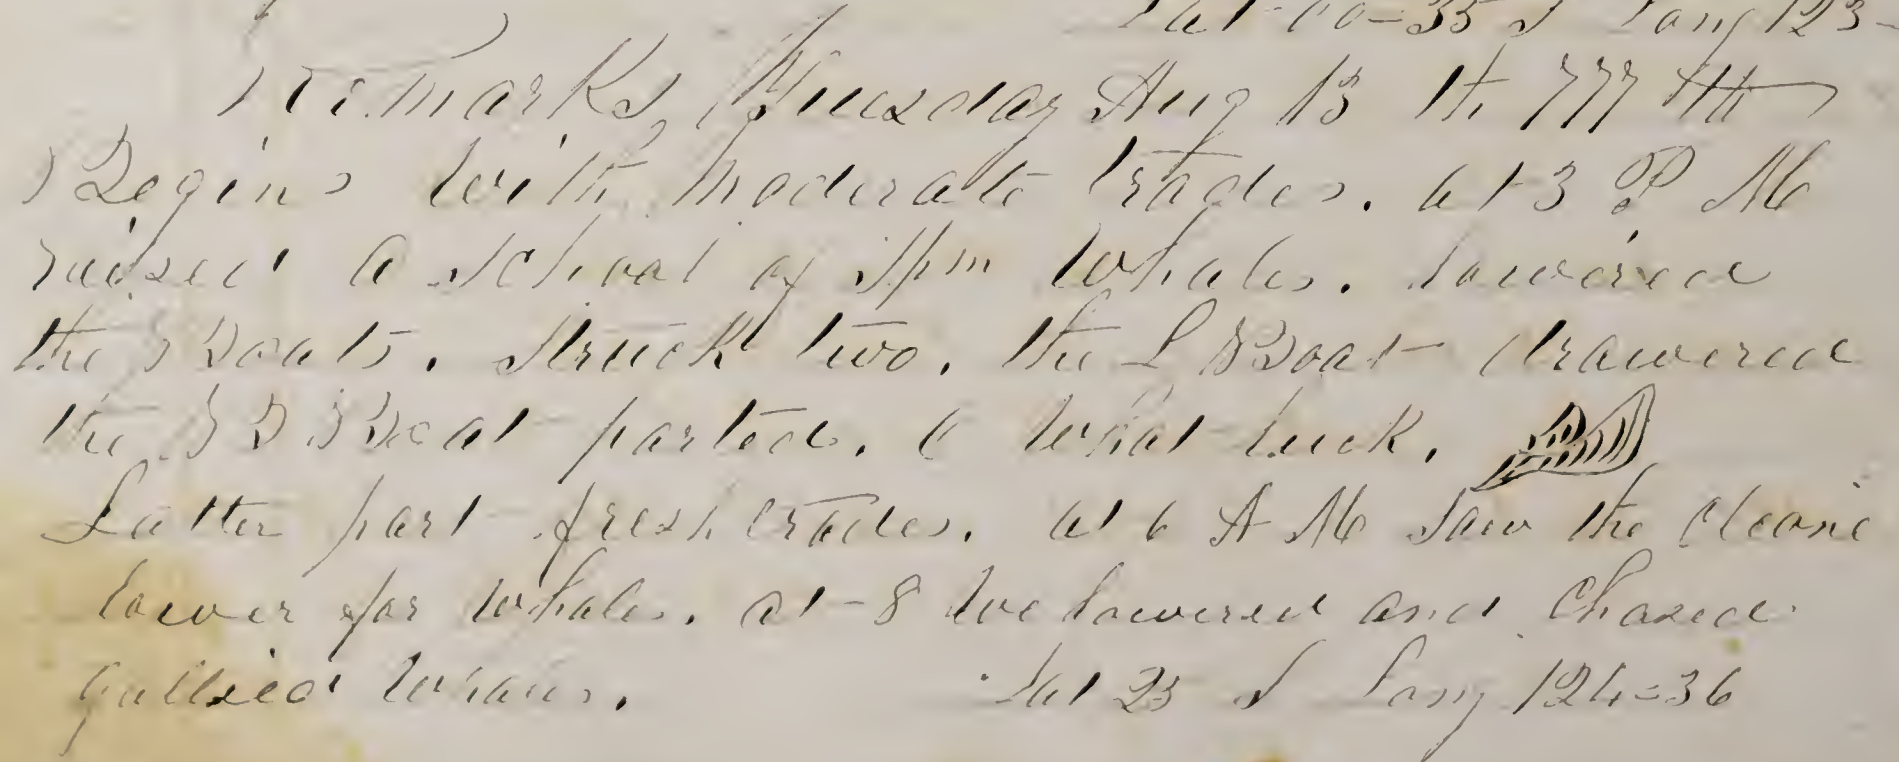 Lat 00-35 S Long 123-
Remarks, Tuesday Aug 13 th 777 th
Begins with moderate trades. at 3 P M
raised a school of Spm Whales. lowered
the Boats. Struck two. the L Boat drawered
the B Boat parted. O What luck.
Latter part fresh trades. at 6 A M Saw the Cleone
lower for Whales. at 8 We lowered and Chased
gallied Whales. Lat 23 S Long 124=36